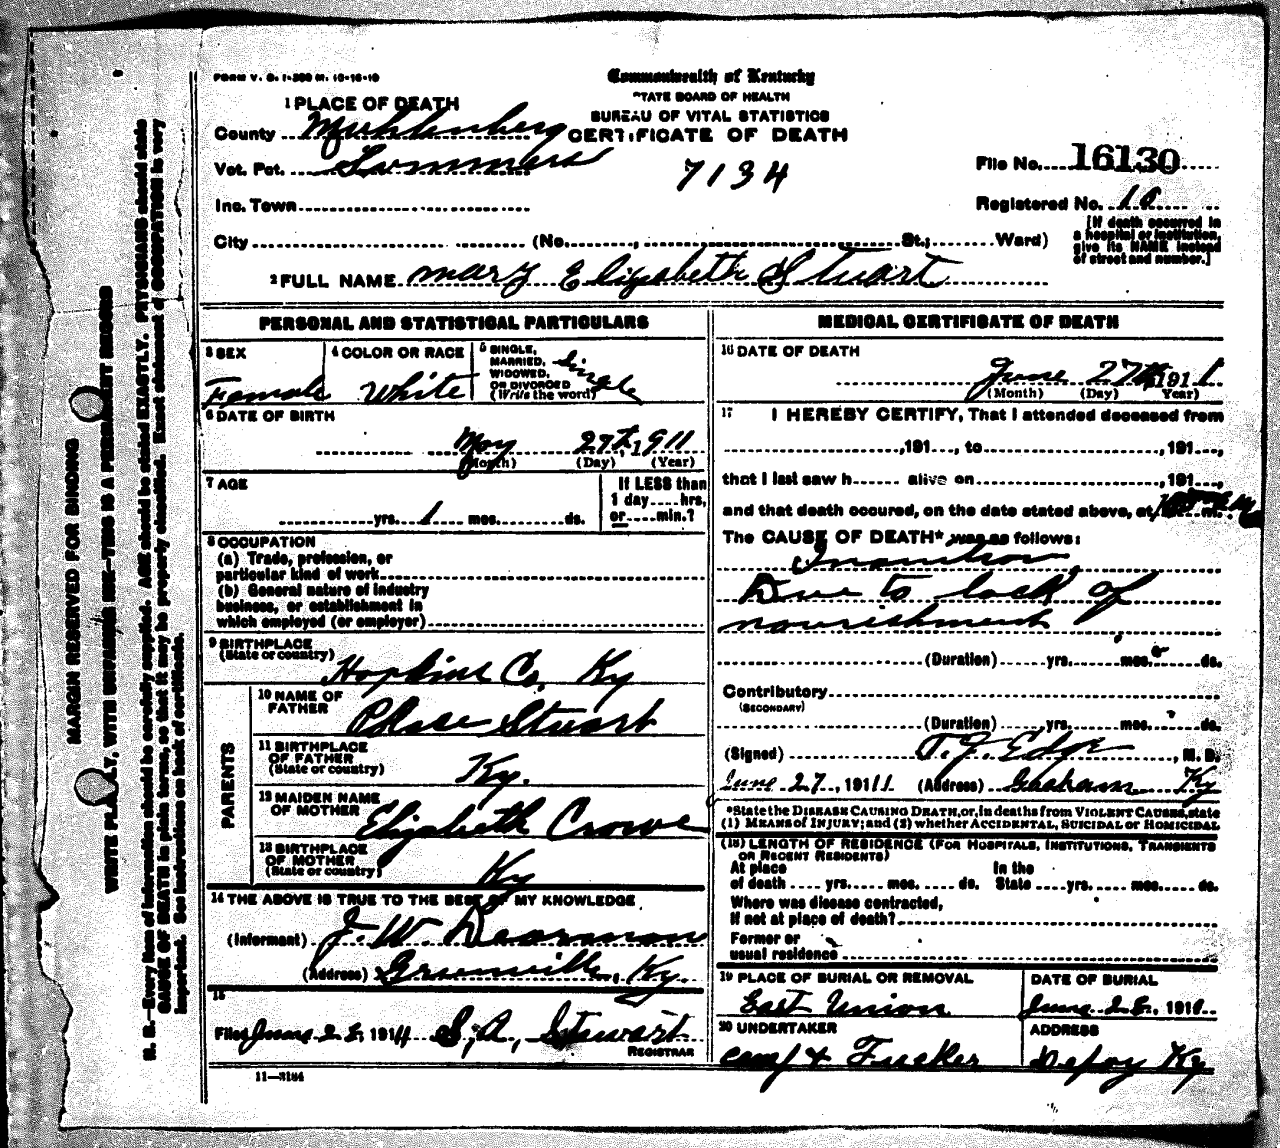 FORM V. S. 1-500 M. 10-16-10
Commonwealth of Kentucky
STATE BOARD OF HEALTH
BUREAU OF VITAL STATISTICS
CERTIFICATE OF DEATH
7134
1 PLACE OF DEATH
County Muhlenberg
Vot. Pct. Summers
Inc. Town
City (No. , St.; Ward)
File No. 16130
Registered No.
[If death occurred in
a hospital or institution,
give its NAME instead
of street and number.]
2 FULL NAME Mary Elizabeth Stuart
PERSONAL AND STATISTICAL PARTICULARS
3 SEX
Female
4 COLOR OR RACE
White
5 SINGLE,
MARRIED,
WIDOWED,
OR DIVORCED
(Write the word)
Single
6 DATE OF BIRTH
May 27th, 1911
(Month) (Day) (Year)
7 AGE
yrs. 1 mos. ds.
If LESS than
1 day hrs.
or min.?
8 OCCUPATION
(a) Trade, profession, or
particular kind of work
(b) General nature of industry
business, or establishment in
which employed (or employer)
9 BIRTHPLACE
(State or country)
Hopkins Co. Ky
PARENTS
10 NAME OF
FATHER
Stuart
11 BIRTHPLACE
OF FATHER
(State or country)
Ky.
12 MAIDEN NAME
OF MOTHER
Elizabeth Crowe
13 BIRTHPLACE
OF MOTHER
(State or country)
Ky
14 THE ABOVE IS TRUE TO THE BEST OF MY KNOWLEDGE
(Informant) J. W. Dearmon
(Address) Greenville, Ky.
15
Filed June 28, 1911 S, A, Stewart
REGISTRAR
11—3184
MEDICAL CERTIFICATE OF DEATH
16 DATE OF DEATH
June 27th, 1911
(Month) (Day) Year)
17 I HEREBY CERTIFY, That I attended deceased from
, 191 , to , 191 ,
that I last saw h alive on , 191 ,
and that death occured, on the date stated above, at m.
The CAUSE OF DEATH* was as follows:
Inanition
Due to lack of
nourishment
(Duration) yrs. mos. ds.
Contributory
(SECONDARY)
(Duration) yrs. mos. ds.
(Signed) T. J. Edge, M. D.
June 27, 1911 (Address) Graham Ky
*State the DISEASE CAUSING DEATH, or, in deaths from VIOLENT CAUSES, state
(1) MEANS of INJURY; and (2) whether ACCIDENTAL, SUICIDAL or HOMICIDAL
(18) LENGTH OF RESIDENCE (FOR HOSPITALS, INSTITUTIONS, TRANSIENTS
OR RECENT RESIDENTS)
At place
of death yrs. mos. ds.
In the
State yrs. mos. ds.
Where was disease contracted,
If not at place of death?
Former or
usual residence
19 PLACE OF BURIAL OR REMOVAL
East Union
DATE OF BURIAL
June 28, 1911
20 UNDERTAKER
& Tucker
ADDRESS
Depoy Ky
MARGIN RESERVED FOR BINDING
WRITE PLAINLY, WITH UNFADING INK—THIS IS A PERMANENT RECORD
N. B.—Every item of information should be carefully supplied. AGE should be stated EXACTLY. PHYSICIANS should state
CAUSE OF DEATH in plain terms, so that it may be properly classified. Exact statement of OCCUPATION is very
important. See instructions on back of certificate.